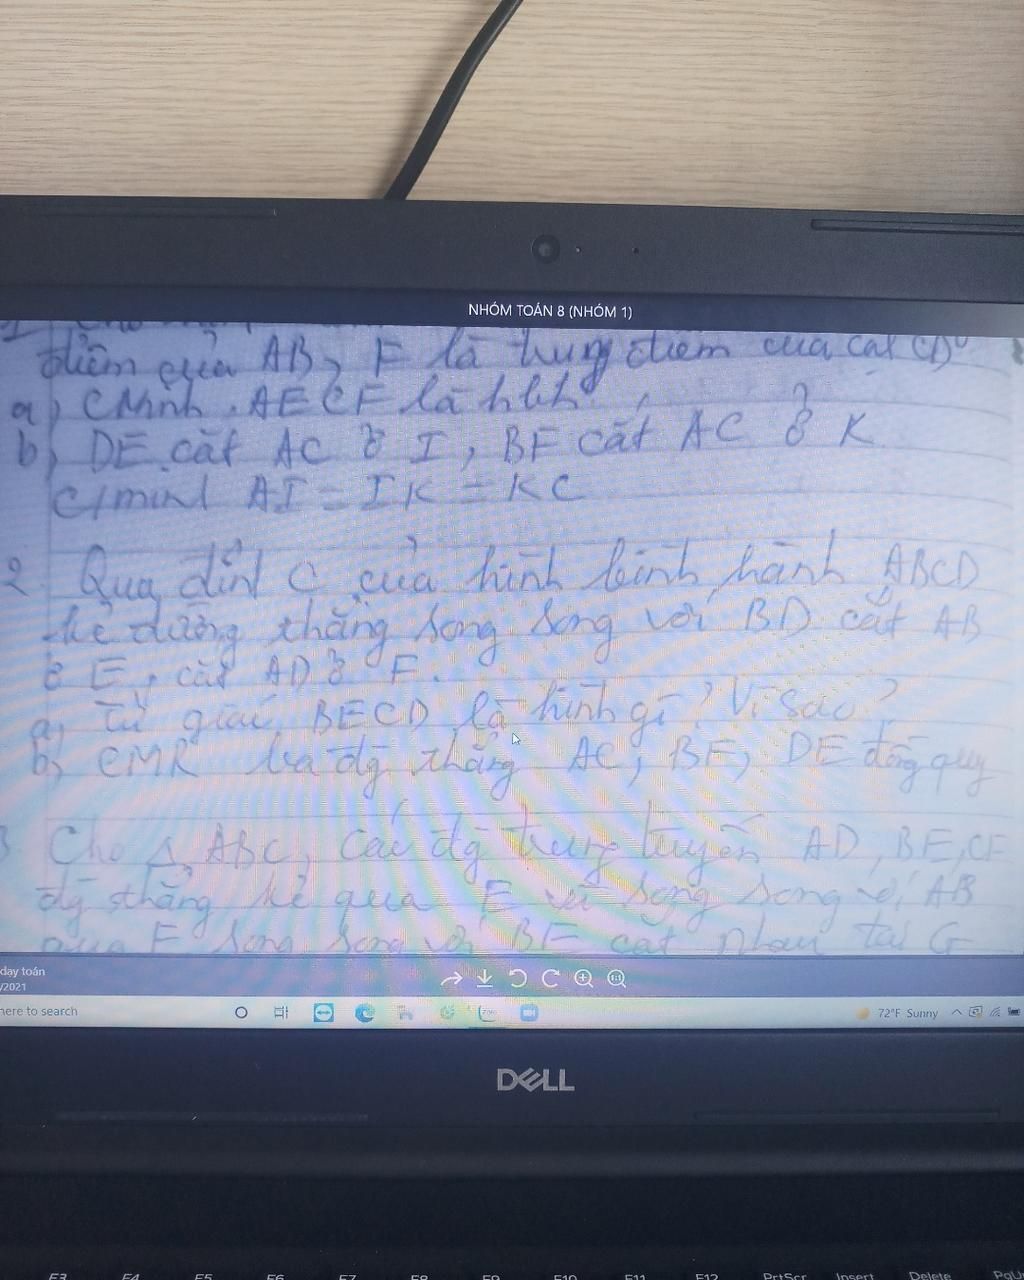 NHÓM TOÁN 8 (NHÓM 1)
1 Cho
điểm của AB, F là trung điểm của cạh CD
a) CMinh AECF là hbh
b) DE cắt AC ở I, BF cắt AC ở K
C/minh AI = IK = KC
2 Qua đỉnh C của hình bình hành ABCD
kẻ đường thẳng song song với BD cắt AB
ở E, cắt AD ở F.
a, Tứ giác BECD là hình gì? Vì sao?
b, CMR ba đg thẳng AC, BF, DE đồng quy
3 Cho Δ ABC, các đg trung tuyến AD, BE, CF
đg thẳng kẻ qua E và song song với AB
qua F song song với BE cắt nhau tại G
dạy toán
/2021
here to search
72°F Sunny
DELL
F3 F4 F5 F6 F7 F8 F9 F10 F11 F12 PrtScr Insert Delete